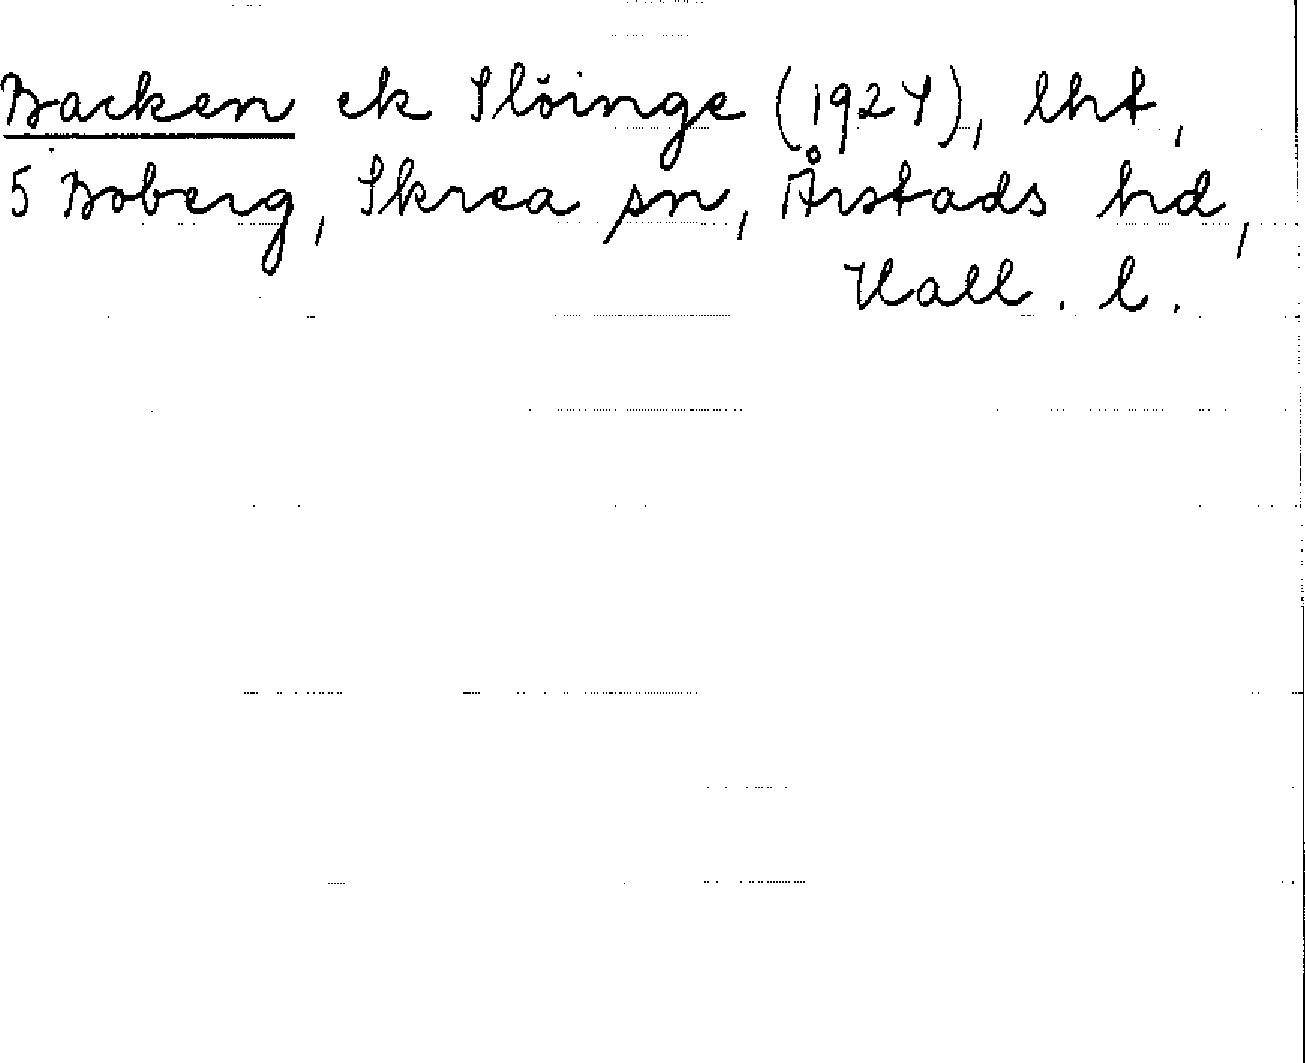 Backen ek Slöinge (1924), lht,
5 Boberg, Skrea sn, Årstads hd,
Hall. l.